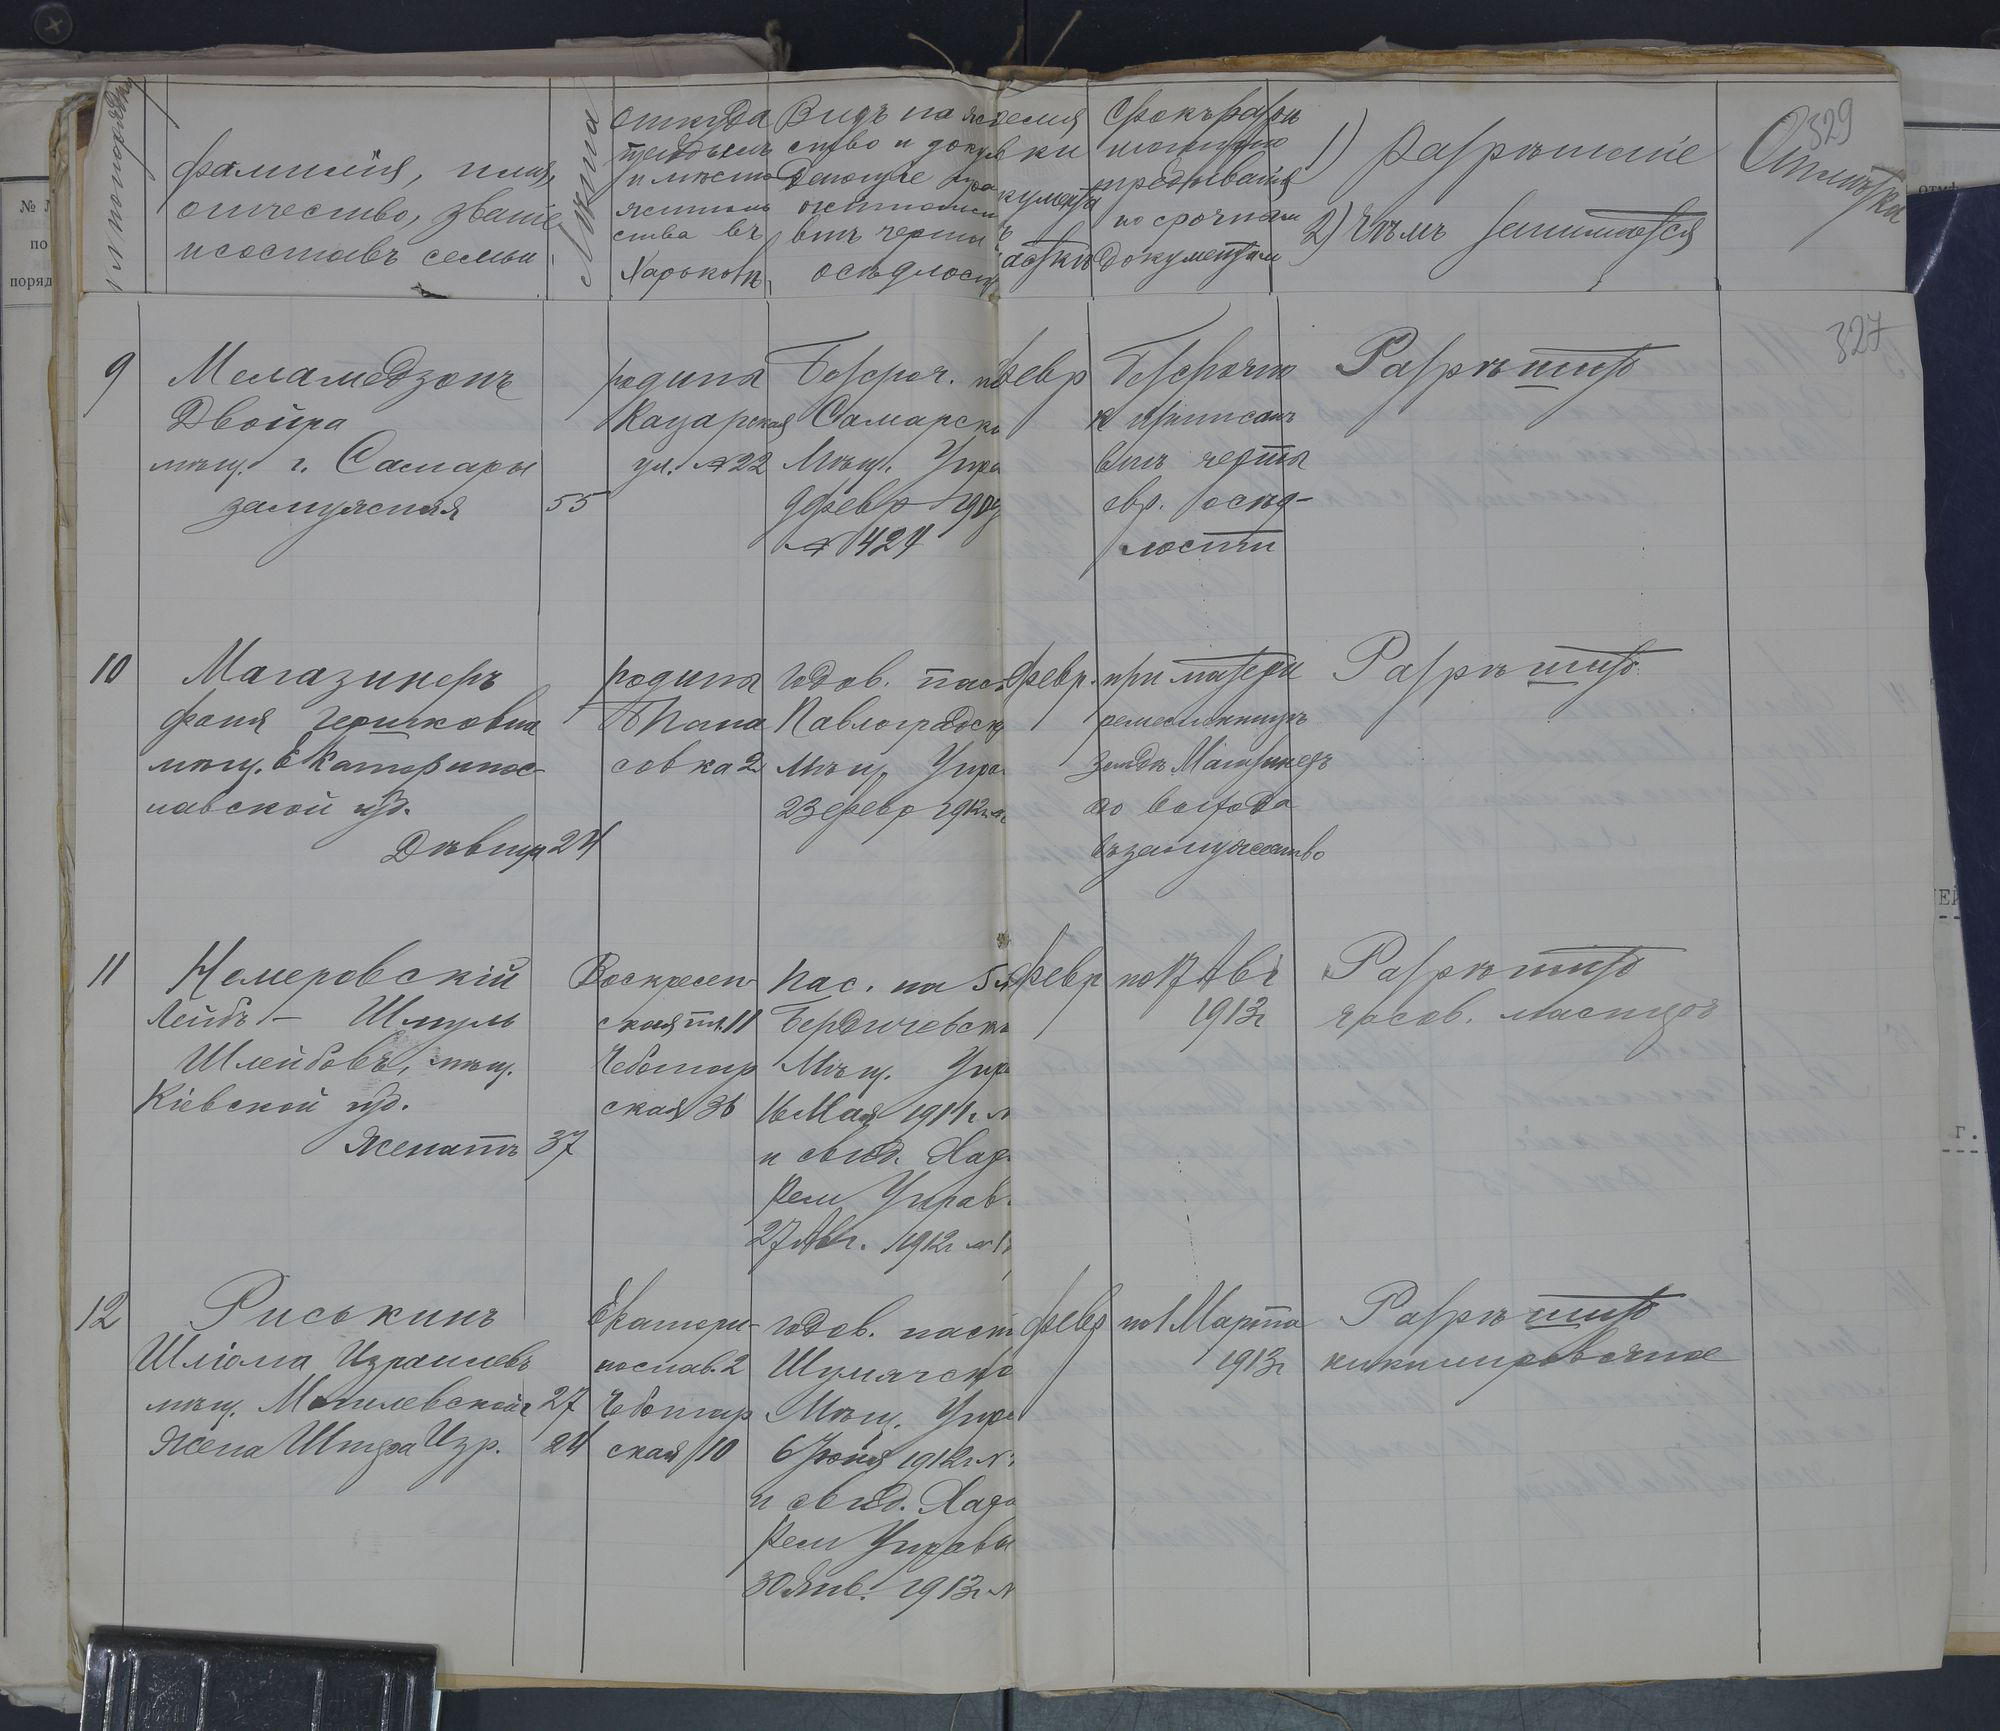 329
№ по порядку
Фамилія, имя,
отчество, званіе
и составъ семьи
Лѣта
откуда
прибылъ
и мѣсто
житель
ства въ
Харьковѣ
Видъ на ж
ство и докум
дающіе право
жительст
внѣ черты
осѣдлост
Срокъ разрѣ
шеннаго
пребыванія
по срочным
документам
1) Разрѣшеніе
2) Чѣмъ занимается
Отмѣтка
327
9
Меламедзонъ
Двойра
мѣщ. г. Самары
замужняя
55
родина
Кацарская
ул. № 22
Безсроч. п
Самарско
Мѣщ. Упра
9 февр 1909
№ 1424
февр
Безсрочно
к приписанъ
внѣ черты
евр. осѣд-
лости
Разрѣшить
10
Магазинеръ
Фаня Гершковна
мѣщ. Екатеринос-
лавской губ.
Дѣвица
24
родина
Панасовка 2
годов. пасп
Павлоградск
Мѣщ. Упра
23 февр 1912 г. №
февр.
при матери
ремесленницѣ
Магазинеръ
до выхода
въ замужество
Разрѣшить
11
Немеровскій
Лейбъ - Шмуль
Шлейбовъ, мѣщ.
Кіевской губ.
Женатъ
37
Воскресен
ская пл. 11
Чеботар
ская 36
Пас. на 5 л
Бердичевск
Мѣщ. Упр
16 Мая 1911 г. №
и свид. Хар.
Рем Управ.
27 Авг. 1912 г. №
февр
по 17 Авг
1913 г
Разрѣшить
часов. мастеръ
12
Риськинъ
Шліома Израилевъ
мѣщ. Могилевской г
27
Жена Шпра Изр.
24
Екатери-
нослав. 2
Чеботар
ская 10
годов. пасп
Шумячско
Мѣщ. Упра
6 Іюня 1912 г. №
и свид. Харь
Рем Управы
30 Янв. 1913 г. №
февр
по 1 Марта
1913 г
Разрѣшить
никилировочное